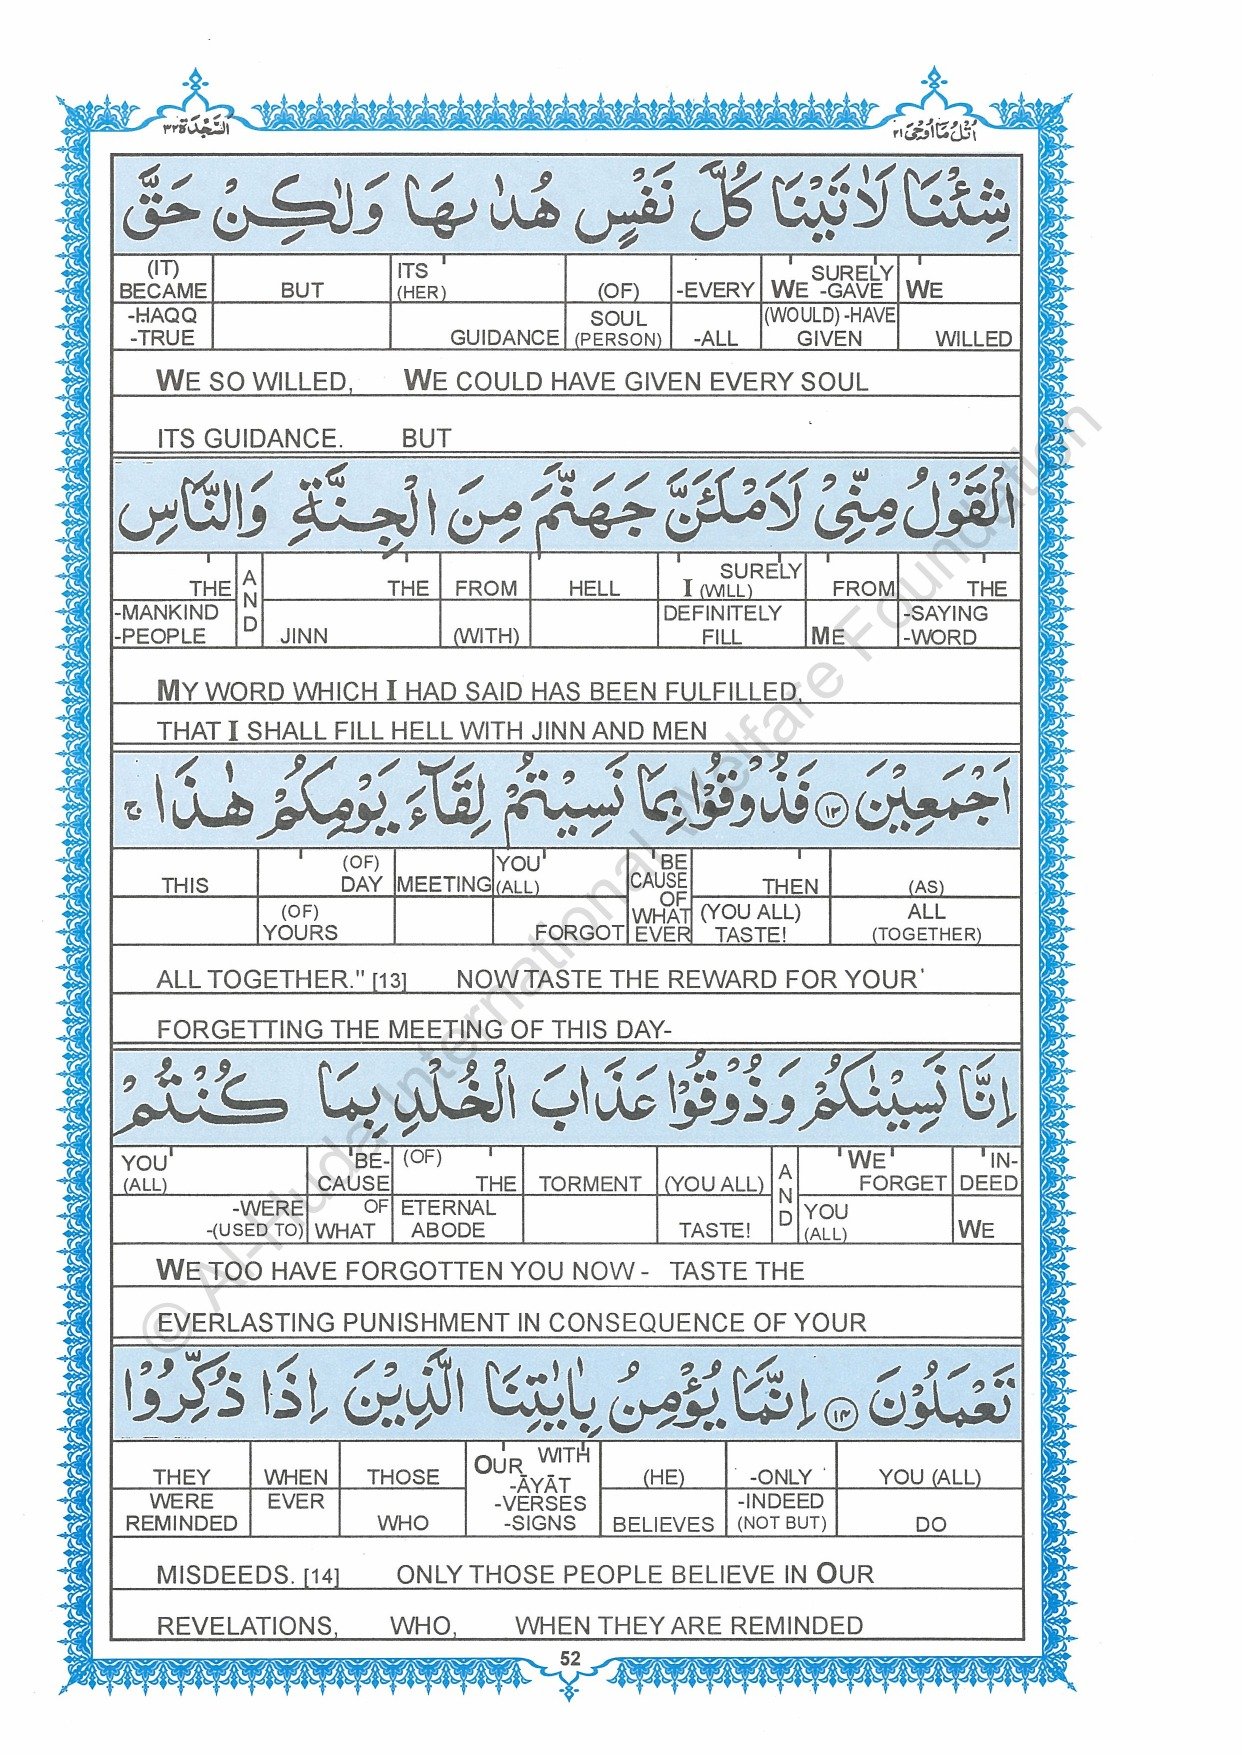 السَّجْدَة ٣٢
اُتْلُ مَا اُوْحِىَ ٢١
شِئْنَا لَاٰتَيْنَا كُلَّ نَفْسٍ هُدٰىهَا وَلٰكِنْ حَقَّ
(IT) BECAME BUT ITS (HER) (OF) -EVERY WE SURELY -GAVE WE
-HAQQ -TRUE GUIDANCE SOUL (PERSON) -ALL (WOULD) -HAVE GIVEN WILLED
WE SO WILLED, WE COULD HAVE GIVEN EVERY SOUL
ITS GUIDANCE. BUT
الْقَوْلُ مِنِّىْ لَاَمْلَئَنَّ جَهَنَّمَ مِنَ الْجِنَّةِ وَالنَّاسِ
THE AND THE FROM HELL SURELY I (WILL) FROM THE
-MANKIND -PEOPLE JINN (WITH) DEFINITELY FILL ME -SAYING -WORD
MY WORD WHICH I HAD SAID HAS BEEN FULFILLED,
THAT I SHALL FILL HELL WITH JINN AND MEN
اَجْمَعِيْنَ ۝١٣ فَذُوْقُوْا بِمَا نَسِيْتُمْ لِقَآءَ يَوْمِكُمْ هٰذَا ۚ
THIS (OF) DAY MEETING YOU (ALL) BE CAUSE OF WHAT EVER THEN (AS)
(OF) YOURS FORGOT (YOU ALL) TASTE! ALL (TOGETHER)
ALL TOGETHER." [13] NOW TASTE THE REWARD FOR YOUR'
FORGETTING THE MEETING OF THIS DAY-
اِنَّا نَسِيْنٰكُمْ وَذُوْقُوْا عَذَابَ الْخُلْدِ بِمَا كُنْتُمْ
YOU (ALL) BE-CAUSE (OF) THE TORMENT (YOU ALL) AND WE FORGET IN-DEED
-WERE -(USED TO) OF WHAT ETERNAL ABODE TASTE! YOU (ALL) WE
WE TOO HAVE FORGOTTEN YOU NOW - TASTE THE
EVERLASTING PUNISHMENT IN CONSEQUENCE OF YOUR
تَعْمَلُوْنَ ۝١٤ اِنَّمَا يُؤْمِنُ بِاٰيٰتِنَا الَّذِيْنَ اِذَا ذُكِّرُوْا
THEY WHEN THOSE OUR WITH -ĀYĀT -VERSES -SIGNS (HE) -ONLY YOU (ALL)
WERE REMINDED EVER WHO BELIEVES -INDEED (NOT BUT) DO
MISDEEDS. [14] ONLY THOSE PEOPLE BELIEVE IN OUR
REVELATIONS, WHO, WHEN THEY ARE REMINDED
52
© Al-Huda International Welfare Foundation